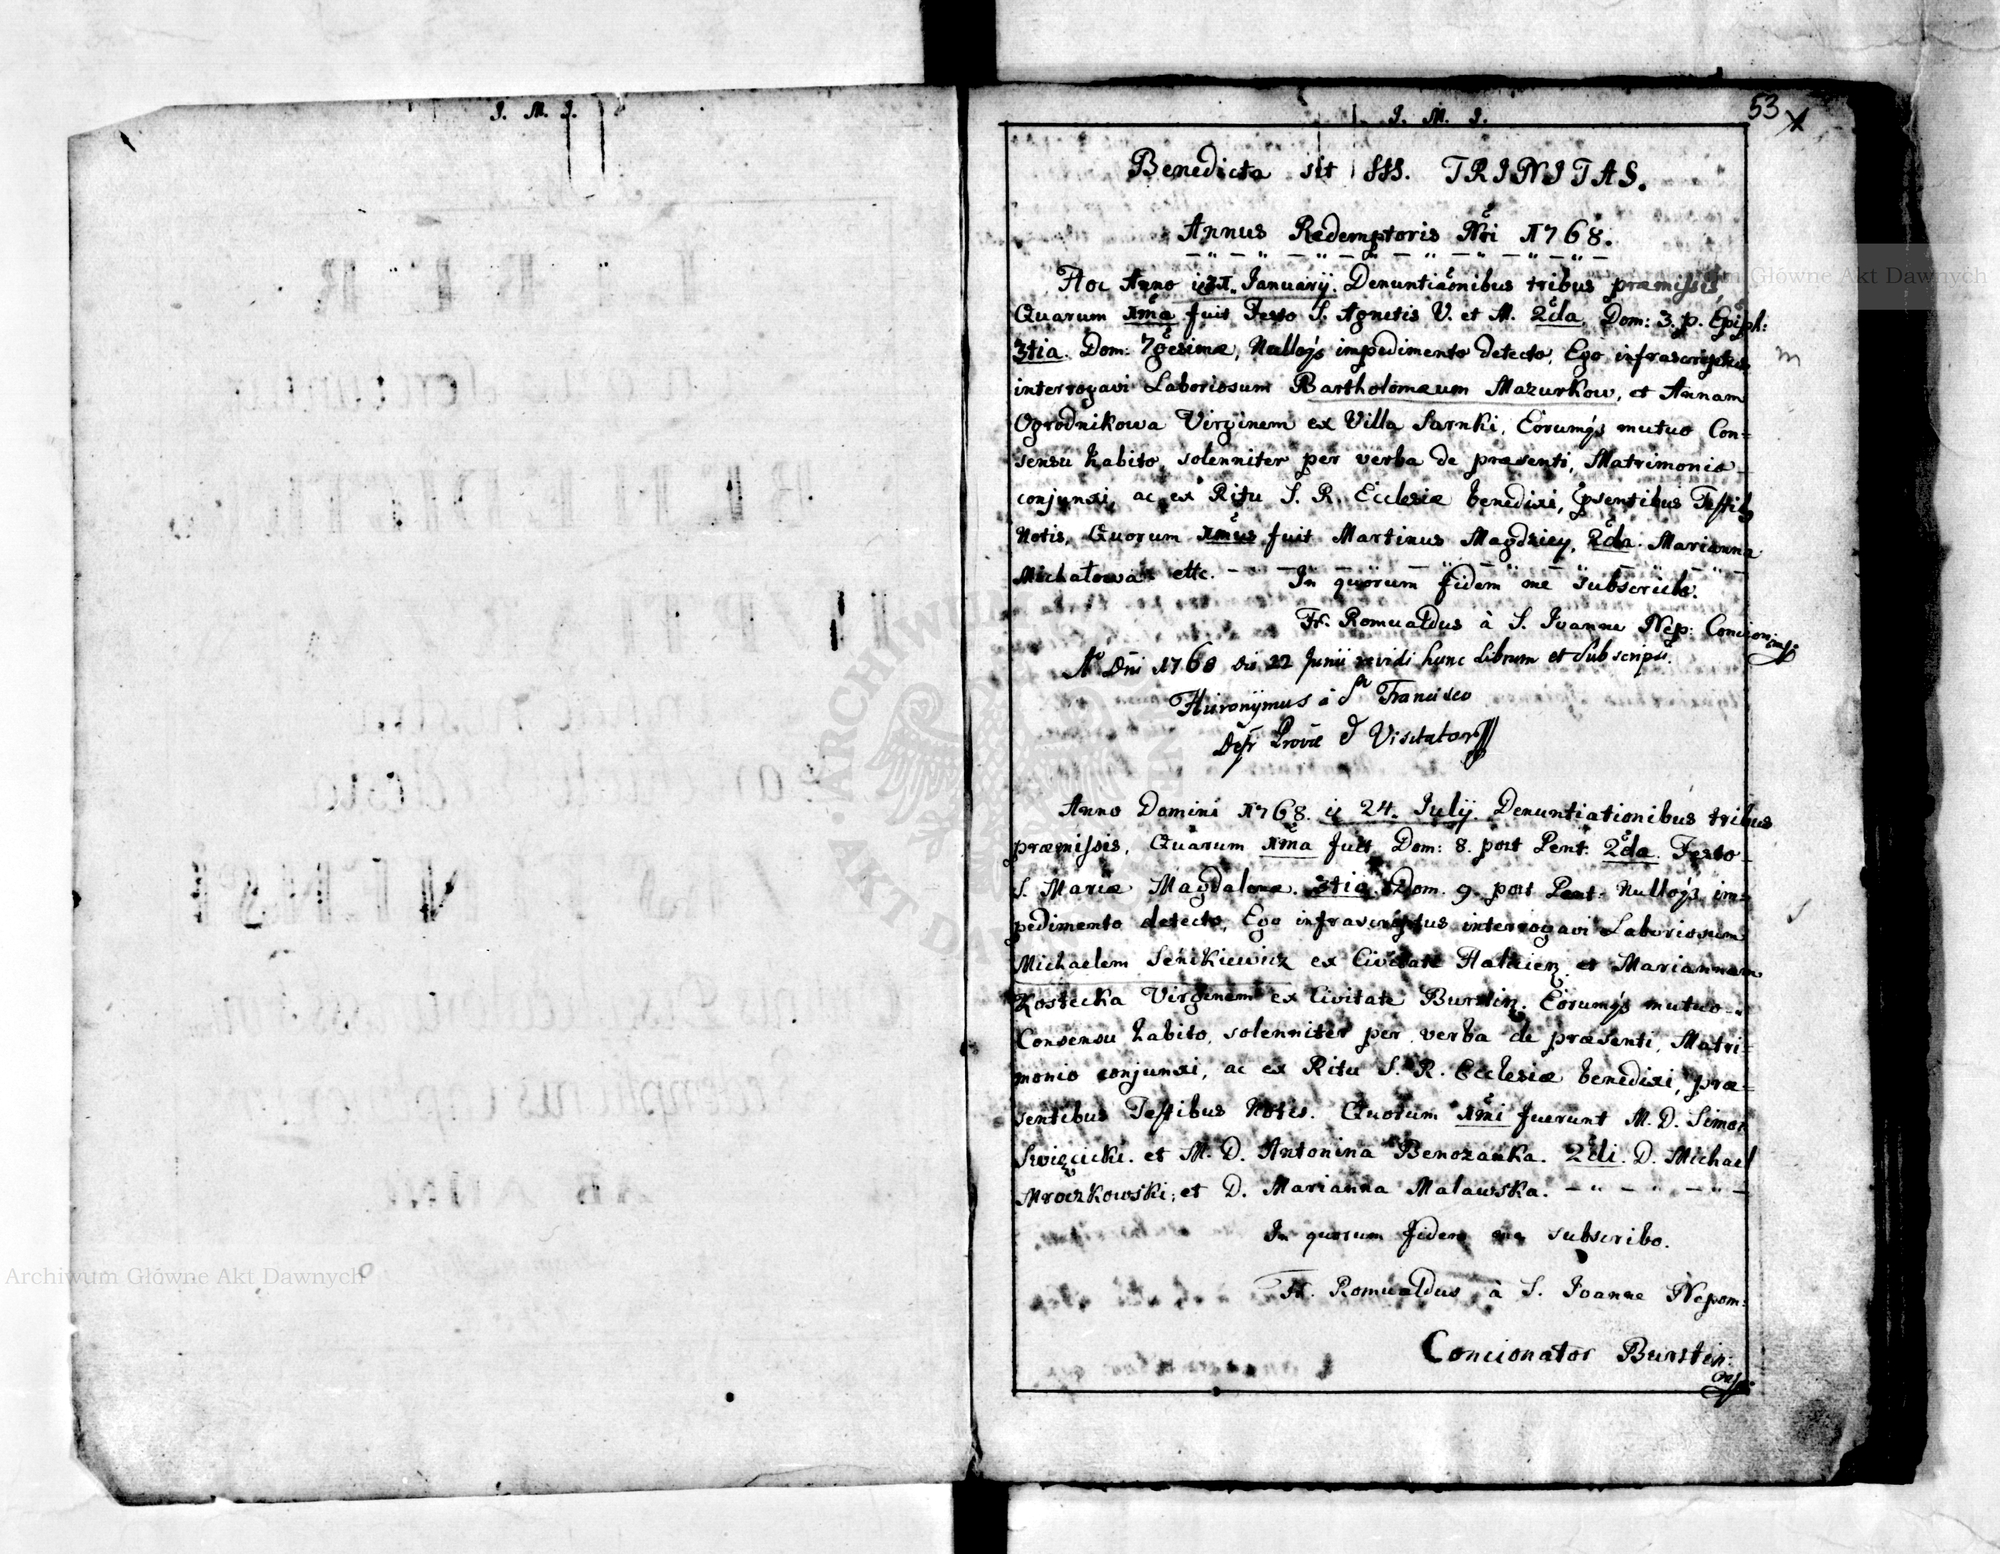 J. M. J.
J. M. J.
53
Benedicta sit SSS. TRINITAS.
Annus Redemptoris Nri 1768.
Hoc Anno 31. Januarÿ. Denuntiaonibus tribus præmissis,
Quarum 1ma fuit Festo S. Agnetis V. et M. 2da Dom: 3. p. Epiph:
3tia. Dom: 7gesimæ, Nulloqs impedimento detecto, Ego infrascriptus
interrogavi Laboriosum Bartholomæum Mazurkow, et Annam
Ogrodnikowa Virginem ex Villa Sarnki, Eorumqs mutuo Con=
sensu habito, solenniter per verba de præsenti, Matrimonio
conjunxi, ac ex Ritu S. R. Ecclesiæ benedixi, psentibus Testibs
Notis, Quorum 1mus fuit Martinus Magdziey, 2da. Marianna
Michałowa etc. In quorum fidem me subscribo.
Fr. Romualdus à S. Ioanne Nep: Concion:
Ao Dni 1768 die 22 Junii revidi hunc Librum et subscripsi.
Hieronymus a So Francisco
Defr Provæ & Visitator
Anno Domini 1768. 24. Julÿ. Denuntiationibus tribus
præmissis, Quarum 1ma fuit Dom: 8. post Pent: 2da. Festo
S. Mariæ Magdalenæ. 3tia. Dom. 9. post Pent. Nulloqs im=
pedimento detecto, Ego infrascriptus interrogavi Laboriosum
Michaelem Senkiewicz ex Civitate Halicien. et Mariannam
Kostecka Virginem ex Civitate Burstin. Eorumqs mutuo
Consensu habito, solenniter per verba de præsenti, Matri=
monio conjunxi, ac ex Ritu S. R. Ecclesiæ benedixi, præ=
sentibus Testibus Notis. Quorum 1mi fuerunt M. D. Simon
Swięcicki. et M. D. Antonina Benozanka. 2di. D. Michael
Mroczkowski; et D. Marianna Malawska.
In quorum fidem me subscribo.
Fr. Romualdus à S. Ioanne Nepom:
Concionator Burstin:
Archiwum Główne Akt Dawnych
ARCHIWUM GŁÓWNE AKT DAWNYCH
Archiwum Główne Akt Dawnych